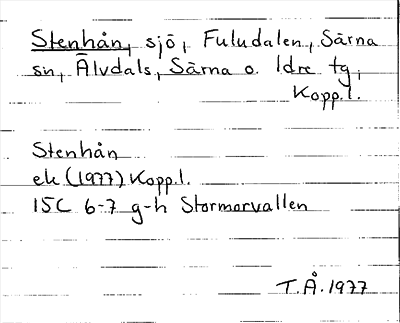 Stenhån, sjö, Fuludalen, Särna
sn, Älvdals, Särna o. Idre tg,
Kopp.l.
Stenhån
ek (1977) Kopp.l.
15C 6-7 g-h Stormorvallen
T.Å. 1977